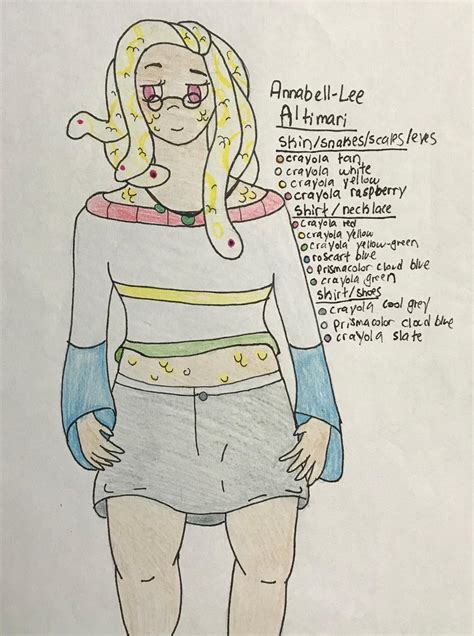 Annabell-Lee
Altimari
skin/snakes/scales/eyes
crayola tan
crayola white
crayola yellow
crayola raspberry
shirt/necklace
crayola red
crayola yellow
crayola yellow-green
roseart blue
prismacolor cloud blue
crayola green
skirt/shoes
crayola cool grey
prismacolor cloud blue
crayola slate